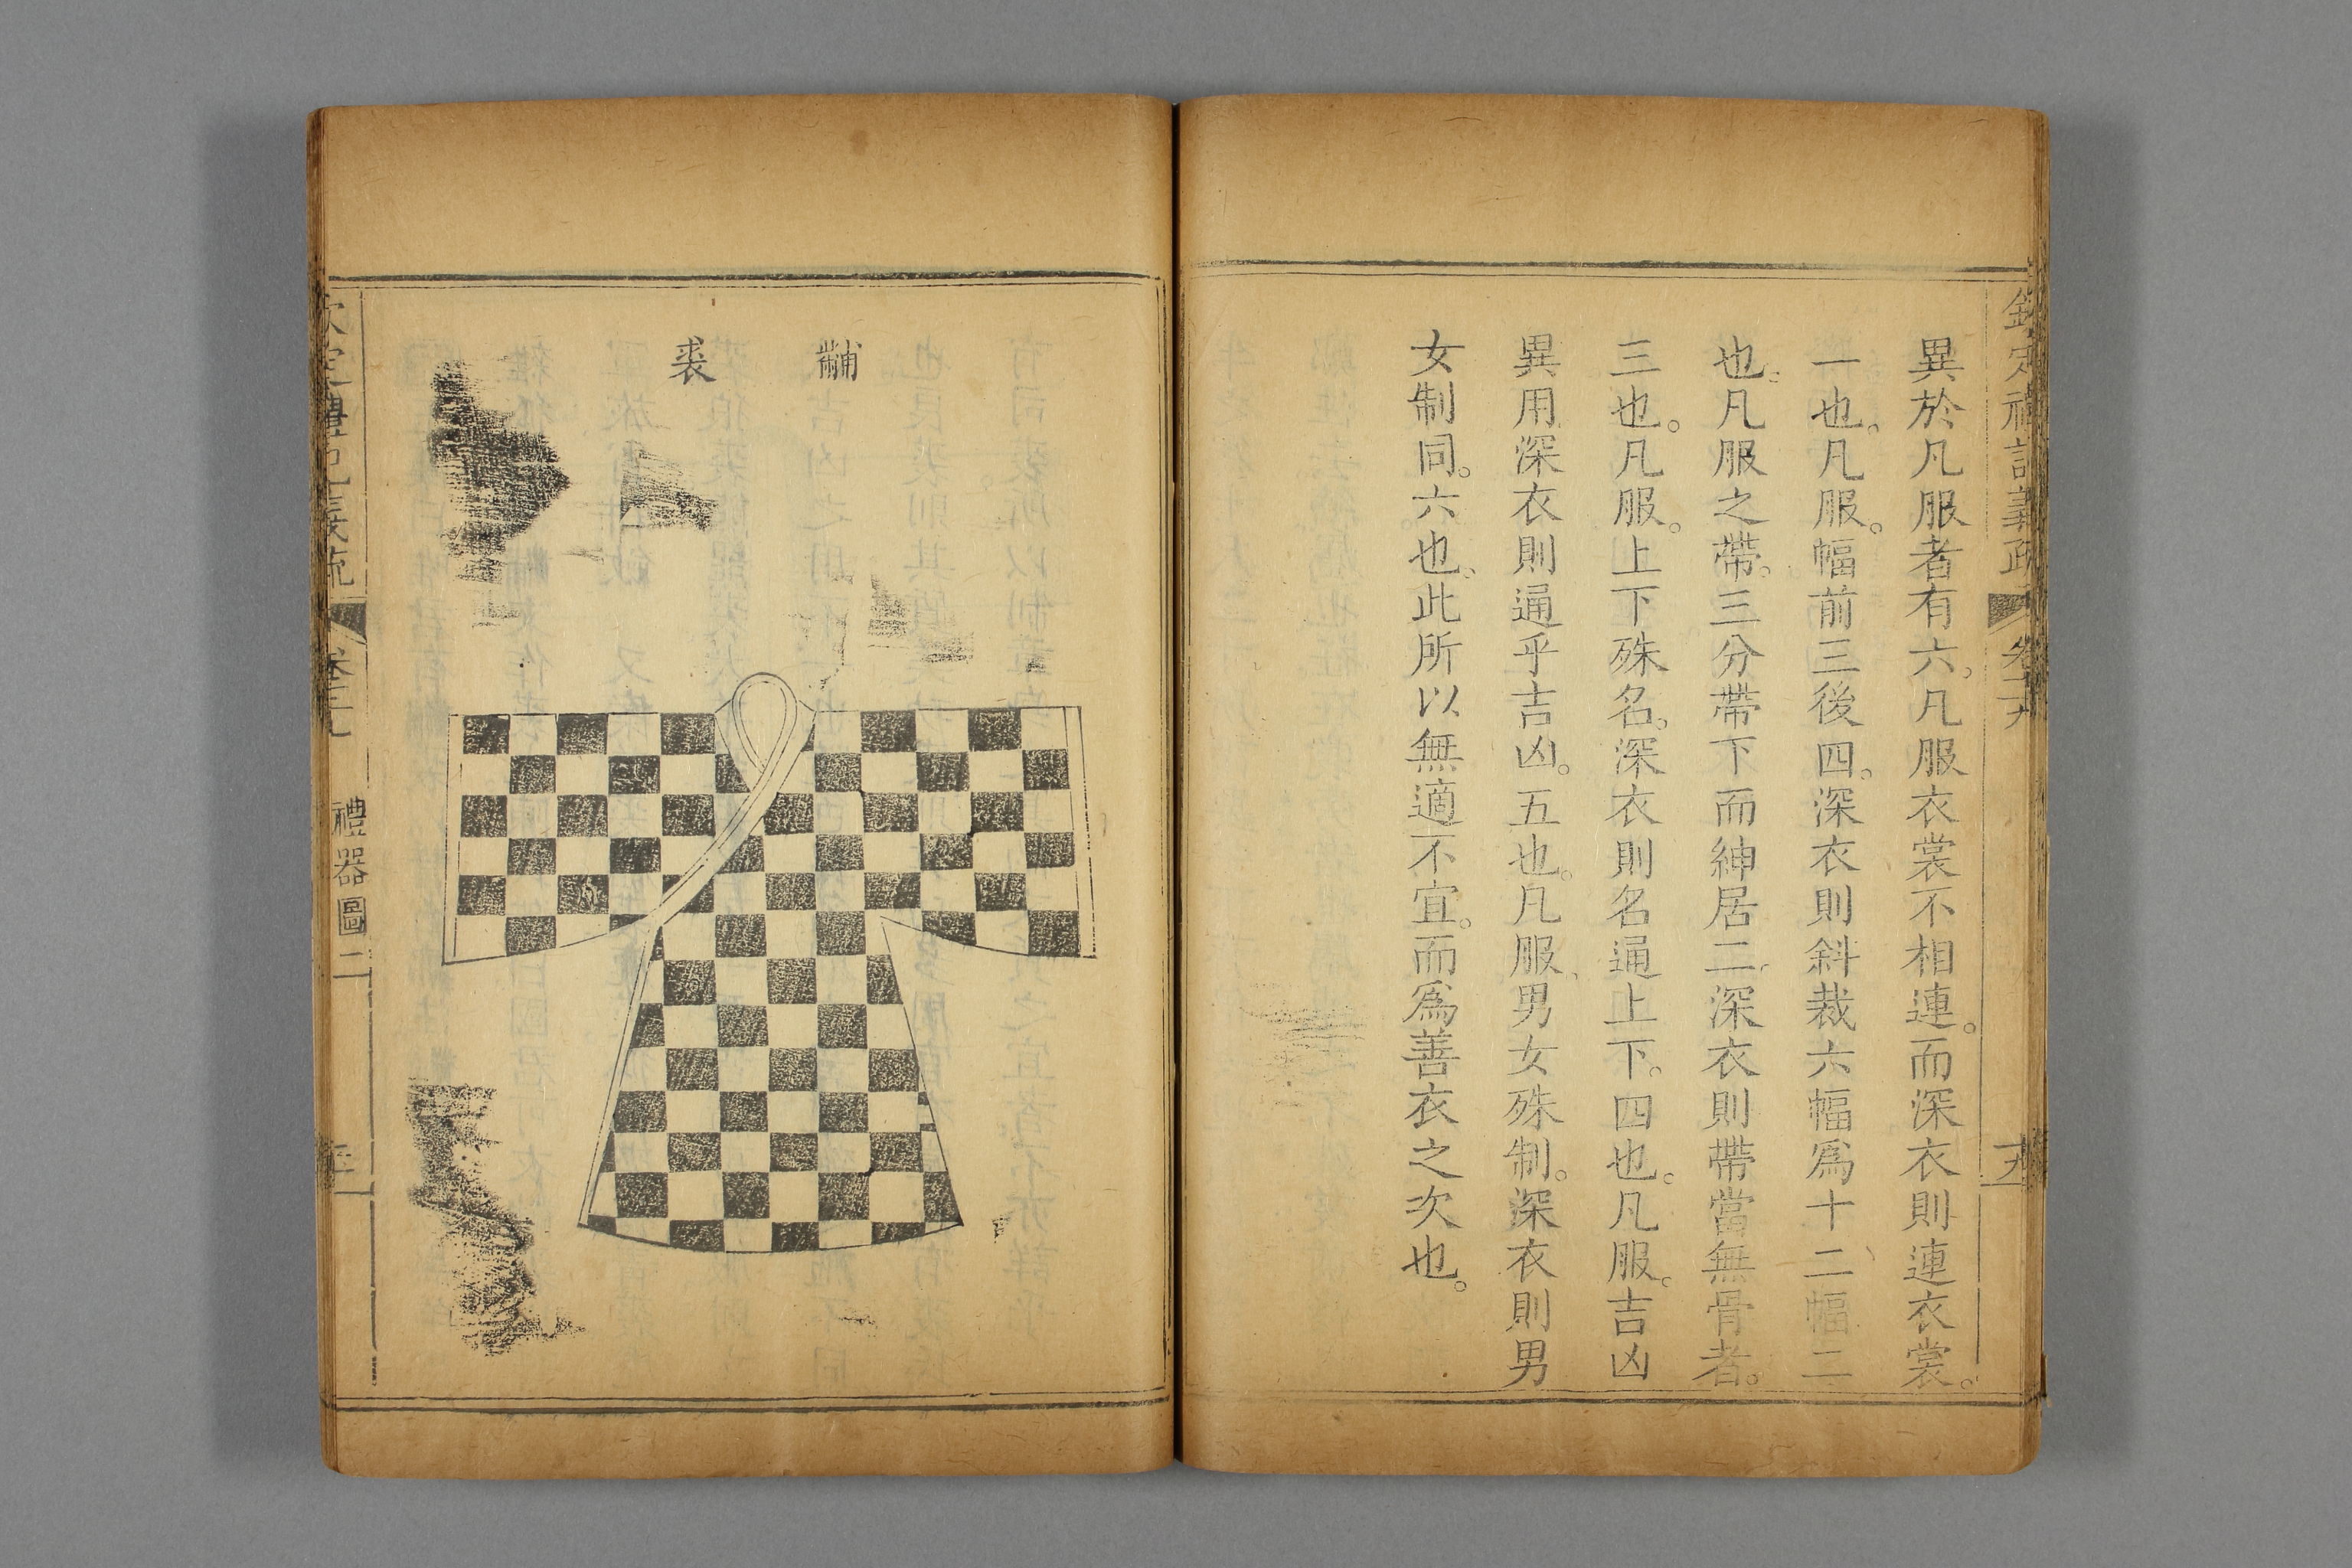 欽定禮記義疏
十九
異於凡服者有六。凡服衣裳不相連。而深衣則連衣裳。
一也。凡服。幅前三後四。深衣則斜裁六幅爲十二幅二
也。凡服之帶。三分帶下而紳居二。深衣則帶當無骨者。
三也。凡服。上下殊名。深衣則名通上下。四也。凡服。吉凶
異用深衣則通乎吉凶。五也。凡服、男女殊制。深衣則男
女制同。六也。此所以無適不宜。而爲善衣之次也。
黼裘
禮器圖二